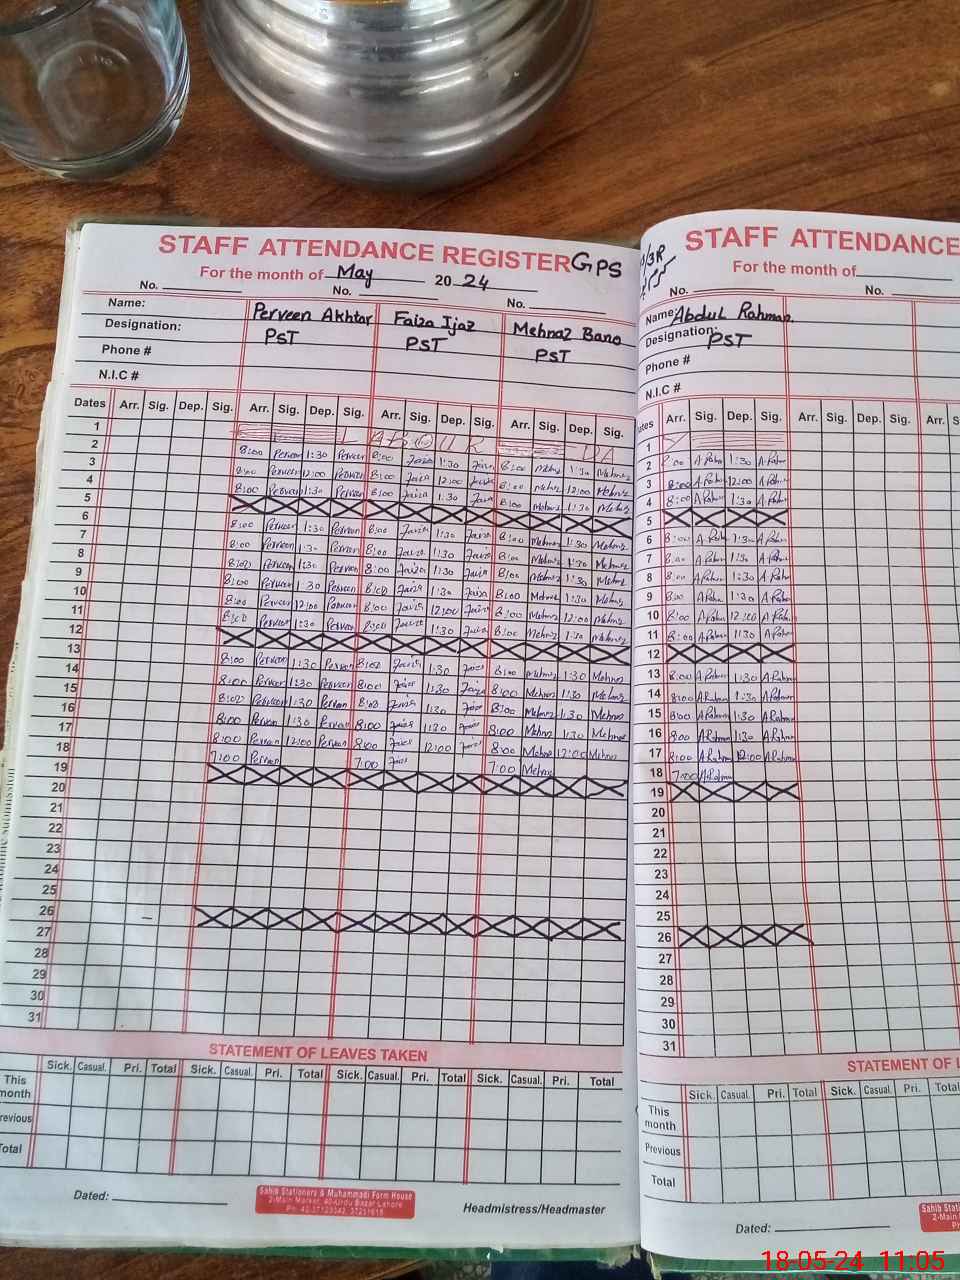 STAFF ATTENDANCE REGISTER GPS
For the month of May 20 24
No. No. No.
Name: Perveen Akhtar Faiza Ijaz Mehnaz Bano
Designation: PST PST PST
Phone #
N.I.C #
Dates Arr. Sig. Dep. Sig. Arr. Sig. Dep. Sig. Arr. Sig. Dep. Sig. Arr. Sig. Dep. Sig.
1 LABOUR DA
2 8:00 Perveen 1:30 Perveen 8:00 Faiza 1:30 Faiza 8:00 Mehnaz 1:30 Mehnaz
3 8:00 Perveen 12:00 Perveen 8:00 Faiza 12:00 Faiza 8:00 Mehnaz 12:00 Mehnaz
4 8:00 Perveen 1:30 Perveen 8:00 Faiza 1:30 Faiza 8:00 Mehnaz 1:30 Mehnaz
5
6 8:00 Perveen 1:30 Perveen 8:00 Faiza 1:30 Faiza 8:00 Mehnaz 1:30 Mehnaz
7 8:00 Perveen 1:30 Perveen 8:00 Faiza 1:30 Faiza 8:00 Mehnaz 1:30 Mehnaz
8 8:00 Perveen 1:30 Perveen 8:00 Faiza 1:30 Faiza 8:00 Mehnaz 1:30 Mehnaz
9 8:00 Perveen 1:30 Perveen 8:00 Faiza 1:30 Faiza 8:00 Mehnaz 1:30 Mehnaz
10 8:00 Perveen 12:00 Perveen 8:00 Faiza 12:00 Faiza 8:00 Mehnaz 12:00 Mehnaz
11 8:00 Perveen 1:30 Perveen 8:00 Faiza 1:30 Faiza 8:00 Mehnaz 1:30 Mehnaz
12
13 8:00 Perveen 1:30 Perveen 8:00 Faiza 1:30 Faiza 8:00 Mehnaz 1:30 Mehnaz
14 8:00 Perveen 1:30 Perveen 8:00 Faiza 1:30 Faiza 8:00 Mehnaz 1:30 Mehnaz
15 8:00 Perveen 1:30 Perveen 8:00 Faiza 1:30 Faiza 8:00 Mehnaz 1:30 Mehnaz
16 8:00 Perveen 1:30 Perveen 8:00 Faiza 1:30 Faiza 8:00 Mehnaz 1:30 Mehnaz
17 8:00 Perveen 12:00 Perveen 8:00 Faiza 12:00 Faiza 8:00 Mehnaz 12:00 Mehnaz
18 7:00 Perveen 7:00 Faiza 7:00 Mehnaz
19
20
21
22
23
24
25
26
27
28
29
30
31
STATEMENT OF LEAVES TAKEN
Sick. Casual. Pri. Total Sick. Casual. Pri. Total Sick. Casual. Pri. Total Sick. Casual. Pri. Total
This month
revious
otal
Dated:
Sahib Stationers & Muhammadi Form House
2-Main Market, 40-Urdu Bazar Lahore
Headmistress/Headmaster
STAFF ATTENDANCE
For the month of
No. No.
Name: Abdul Rahman
Designation: PST
Phone #
N.I.C #
ates Arr. Sig. Dep. Sig. Arr. Sig. Dep. Sig. Arr. S
1
2 8:00 A Rahm 1:30 A Rahm
3 8:00 A Rahm 12:00 A Rahm
4 8:00 A Rahm 1:30 A Rahm
5
6 8:00 A Rahm 1:30 A Rahm
7 8:00 A Rahm 1:30 A Rahm
8 8:00 A Rahm 1:30 A Rahm
9 8:00 A Rahm 1:30 A Rahm
10 8:00 A Rahm 12:00 A Rahm
11 8:00 A Rahm 1:30 A Rahm
12
13 8:00 A Rahm 1:30 A Rahm
14 8:00 A Rahm 1:30 A Rahm
15 8:00 A Rahm 1:30 A Rahm
16 8:00 A Rahman 1:30 A Rahman
17 8:00 A Rahman 12:00 A Rahman
18 7:00 A Rahman
19
20
21
22
23
24
25
26
27
28
29
30
31
STATEMENT OF L
Sick. Casual. Pri. Total Sick. Casual. Pri. Total
This month
Previous
Total
Dated:
Sahib Stati
2-Main
18-05-24 11:05